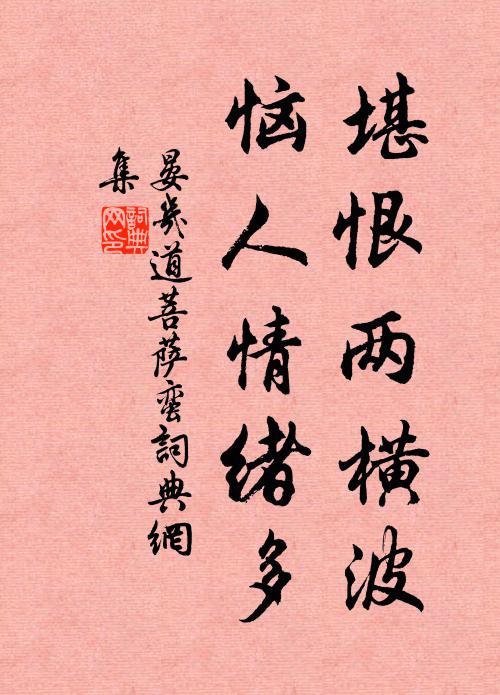 堪恨两横波
恼人情绪多
晏几道菩萨蛮詞典網
集
詞典网印